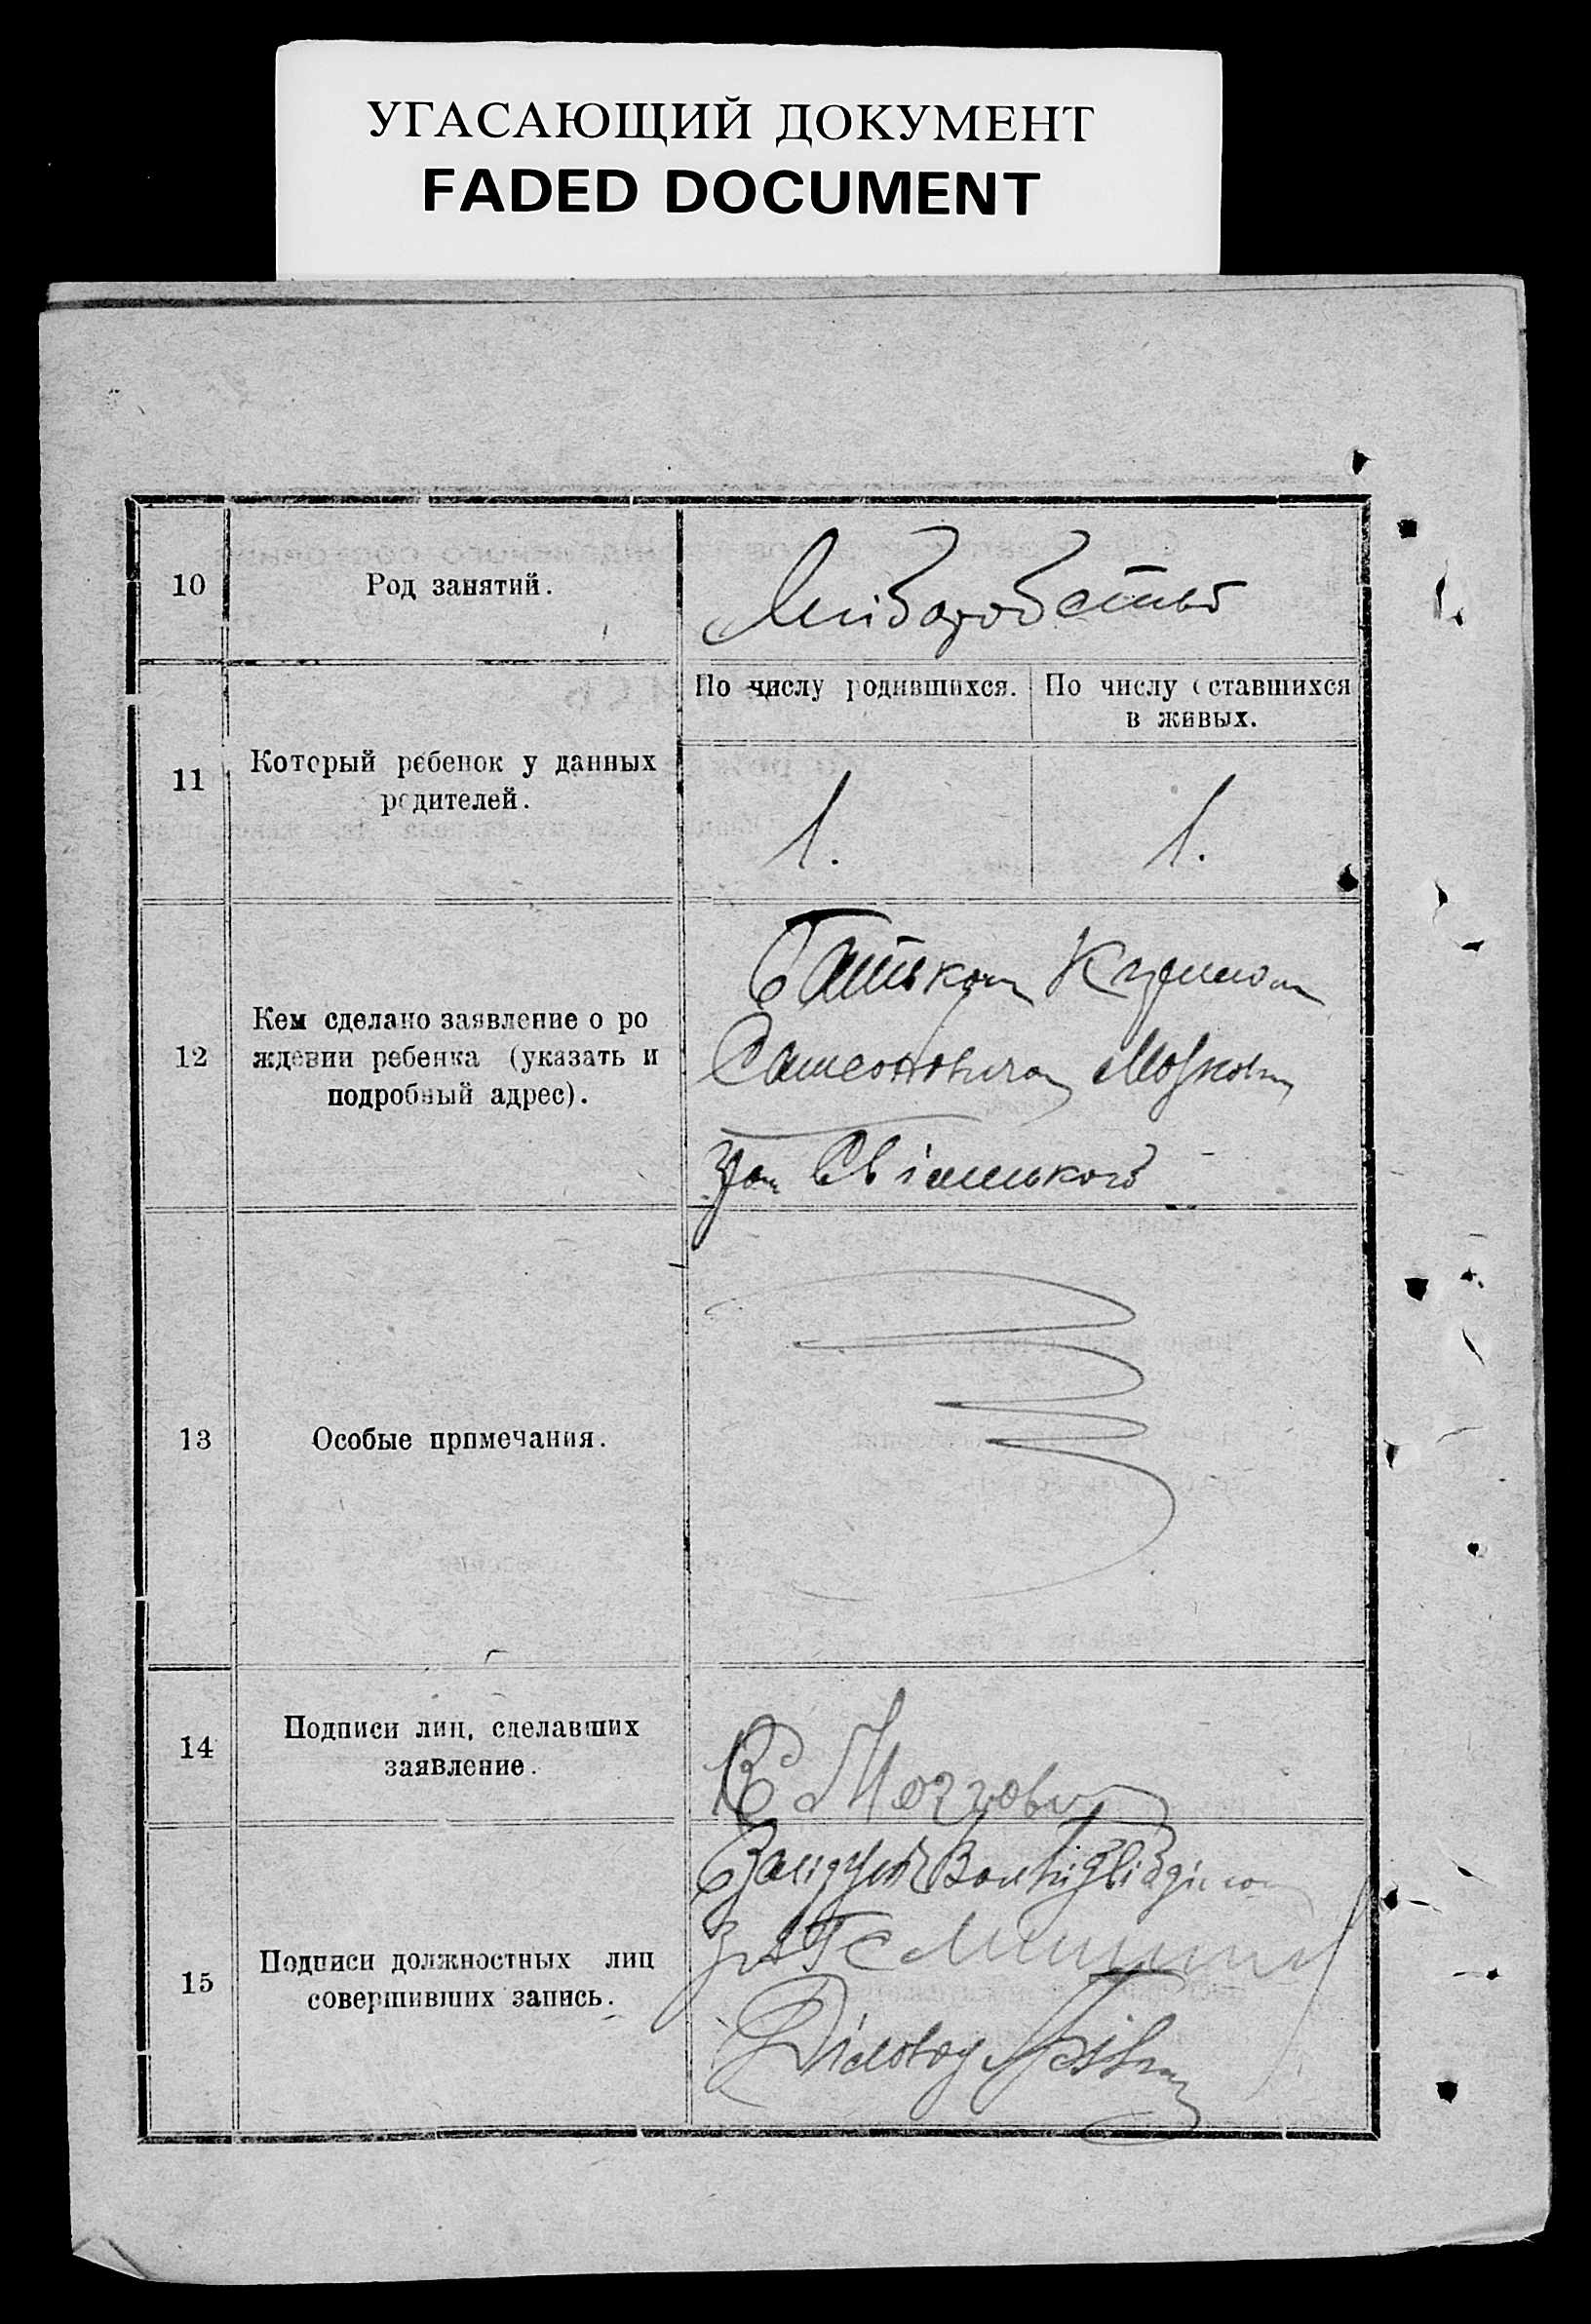 УГАСАЮЩИЙ ДОКУМЕНТ
FADED DOCUMENT
10
Род занятий.
Хліборобство
11
Который ребенок у данных
родителей.
По числу родившихся.
По числу оставшихся
в живых.
1.
1.
12
Кем сделано заявление о ро
ждении ребенка (указать и
подробный адрес).
Батьком Кузьмою
Самсоновичом
13
Особые примечания.
14
Подписи лиц, сделавших
заявление.
К
15
Подписи должностных лиц
совершивших запись.
ЗАГС
Діловод